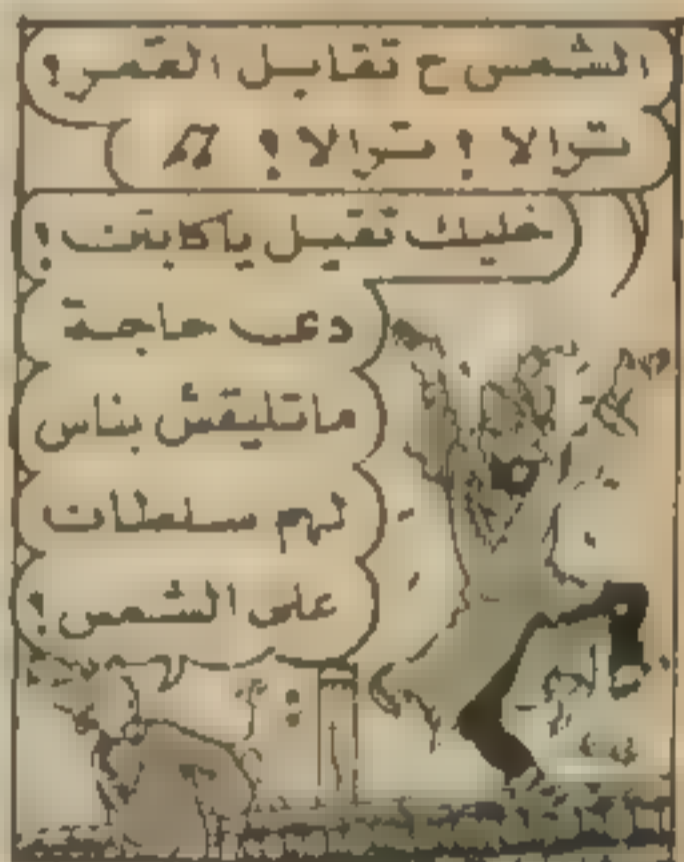 الشمس ح تقابل القمر!
ترالا! ترالا!
خليك تقيل ياكابتن!
دى حاجة
ماتليقش بناس
لهم سلطات
على الشمس!